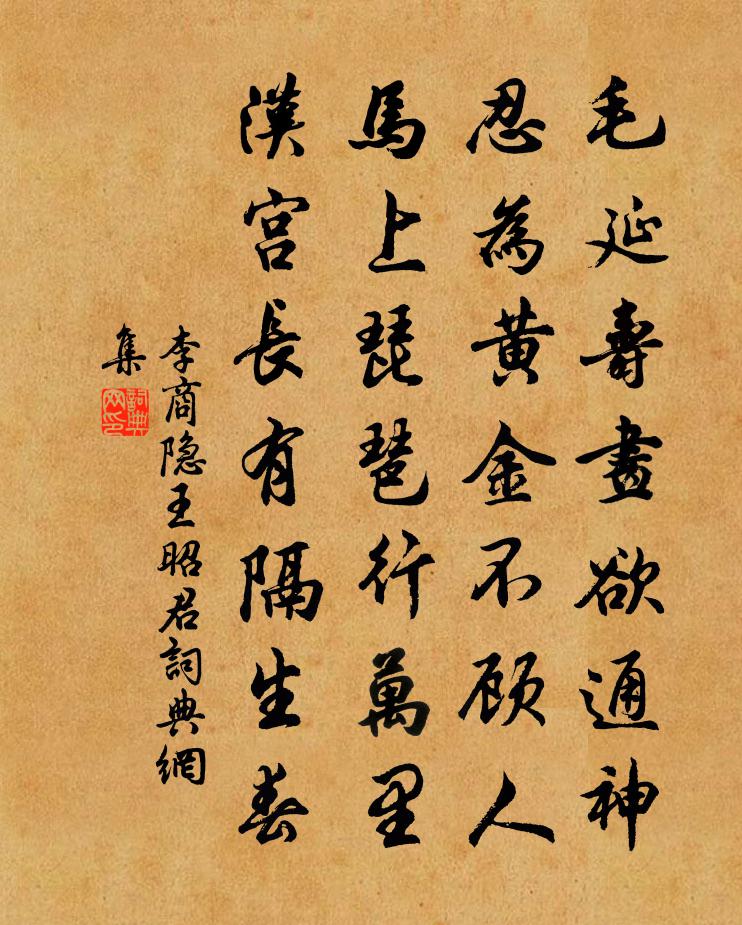 毛延壽畫欲通神
忍為黃金不顧人
馬上琵琶行萬里
漢宮長有隔生春
李商隐王昭君詞典網
集
詞典网印